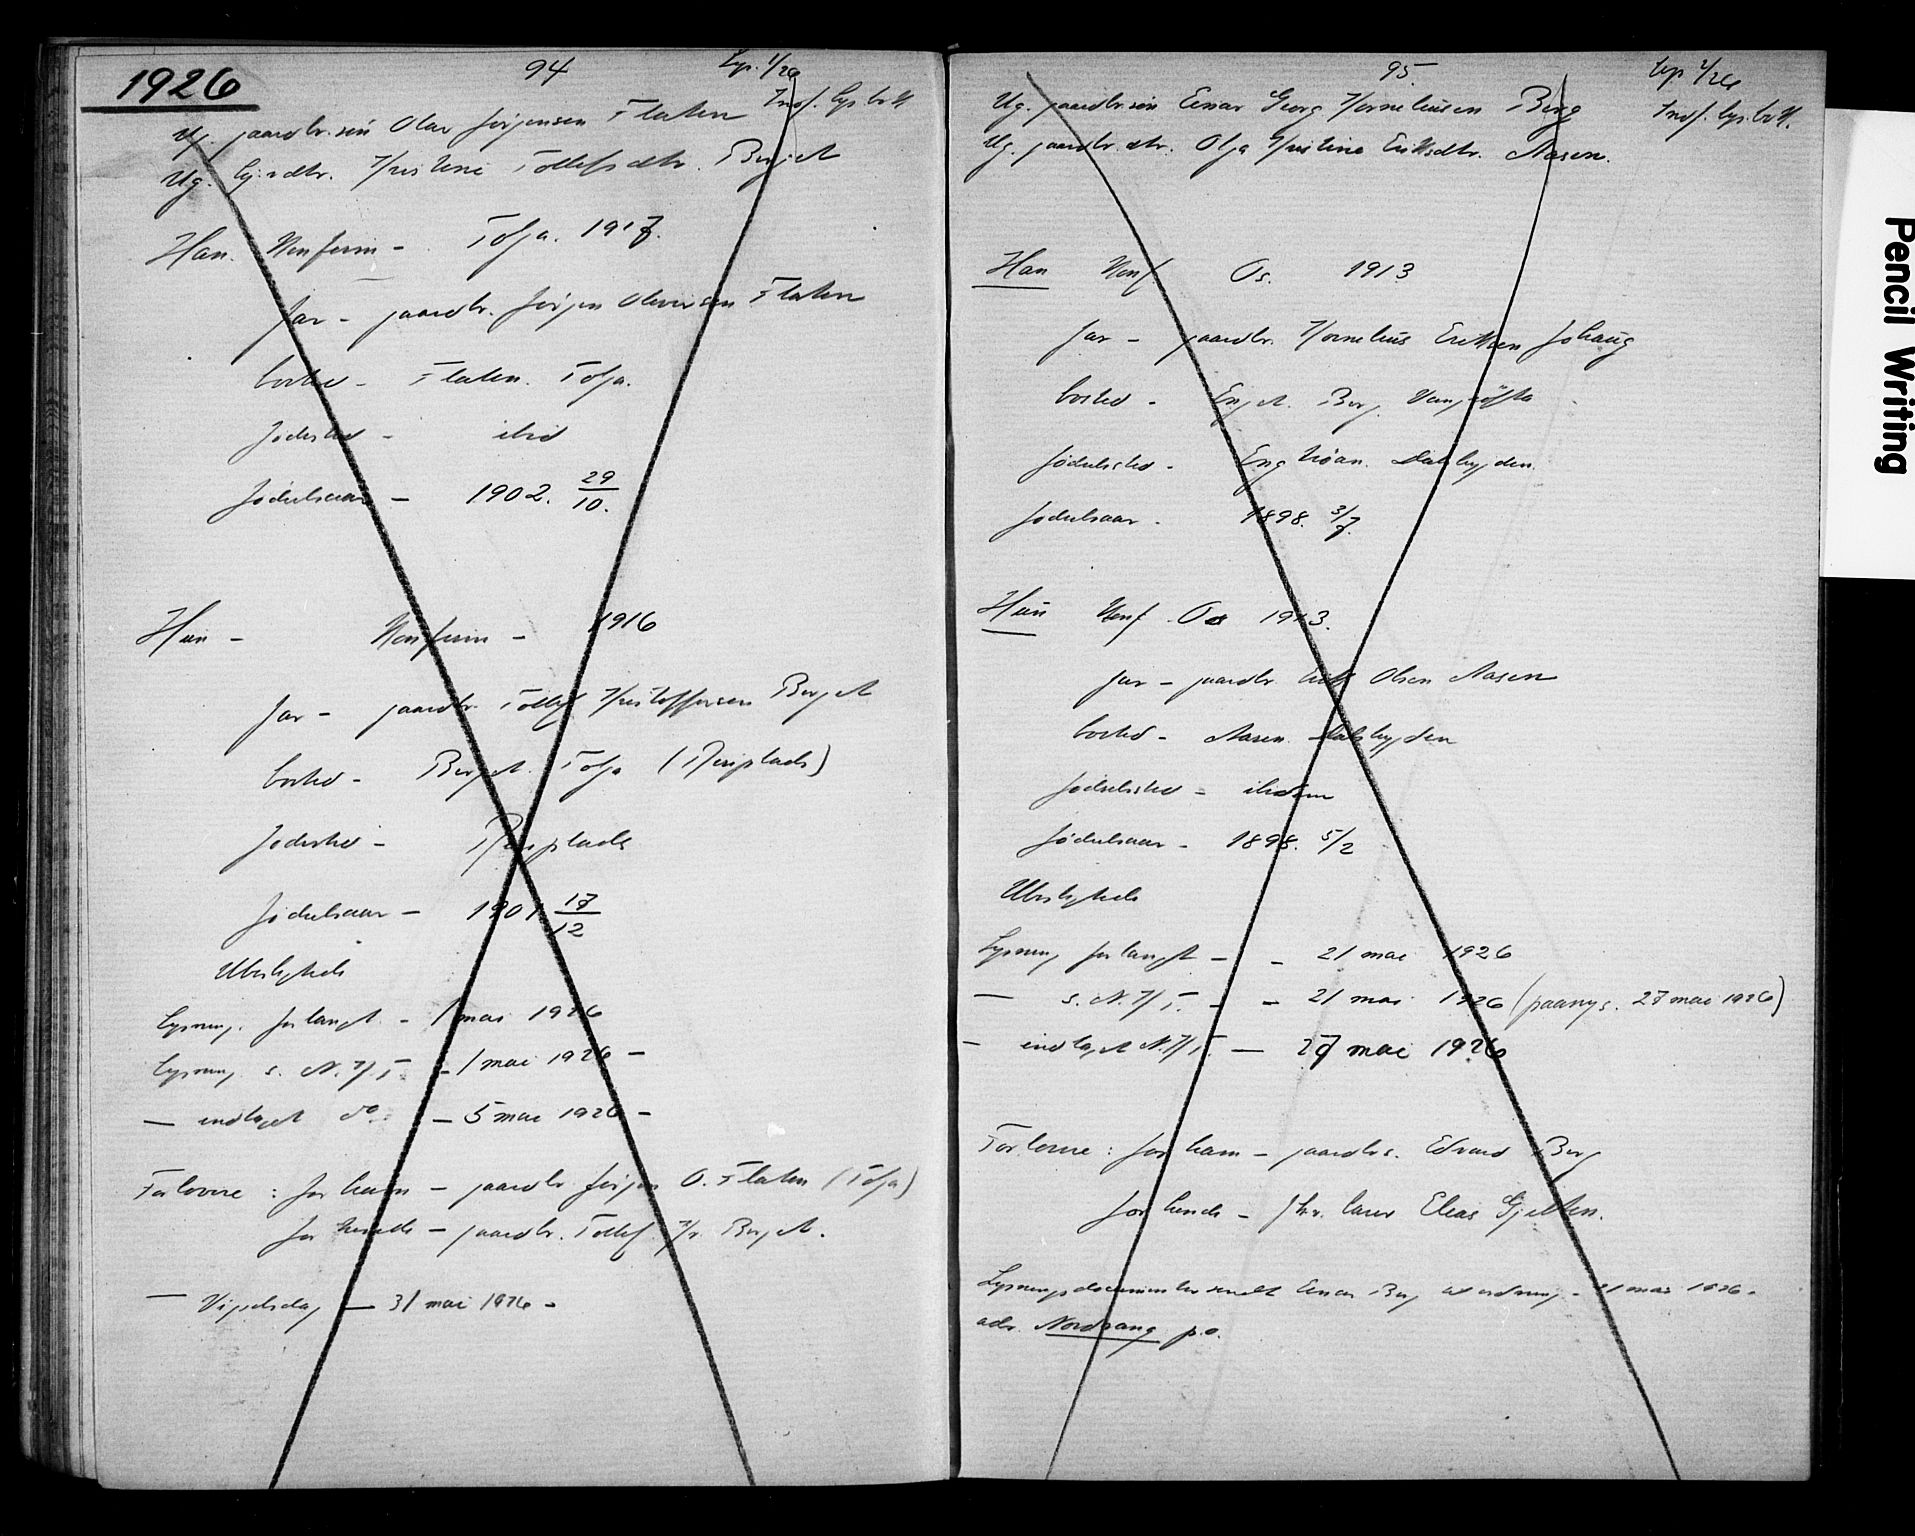 1926
94
Lys. 1/26
Indf. lys. bok
Ug. gaardbr.søn Olav Jørgensen Flaten
Ug. gaardbr.dtr. Kristine Tollefsdtr. Berget
Han. Konfirm - Tolga. 1917.
far - gaardbr. Jørgen Olavsen Flaten
bosted - Flaten. Tolga.
fødested - ibid
fødselsaar - 1902. 29/10.
Hun - Konfirm - 1916
far - gaardbr. Tollef Kristoffersen Berget
bosted - Berget. Tolga
fødested -
fødselsaar - 1901 17/12
Ubeslegtede
Lysning forlangt - 1 mai 1926
Lysning s. N.K.T. - 1 mai 1926 -
— indtaget do. - 5 mai 1926 -
Forlovere : for ham - gaardbr Jørgen O. Flaten (Tolga)
for hende - gaardbr. Tollef Kr. Berget.
— Vigselsdag — 31 mai 1926 -
95
Lys 2/26
Indf. lys. bok.
Ug. gaardbr.søn Einar Georg Korneliussen Berg
Ug. gaardbr.dtr. Olga Kristine Eriksdtr. Aasen.
Han Konf Os. 1913
far - gaardbr. Kornelius Eriksen Johaug
bosted - Enget. Berg. Vangrøfta
fødselssted - Dalsbygden.
fødselsaar - 1898. 3/7.
Hun Konf. Os 1913.
far - gaardbr Erik Olsen Aasen
bosted - Aasen Dalsbygden
fødselssted - ibidem
fødselsaar - 1898. 5/2
Ubeslegtede
Lysning forlangt - - 21 mai 1926
— s. N.K.T. - - 21 mai 1926 (paany s. 27 mai 1926)
- indtaget N.K.T. — 27 mai 1926
Forlovere : for ham - gaardbr. Edvard Berg
for hende - Elias Gjelten.
Lysningsdocumenter sendt Einar Berg - 21 mai 1926 -
adr. Nordvang p.o.
Pencil Writing